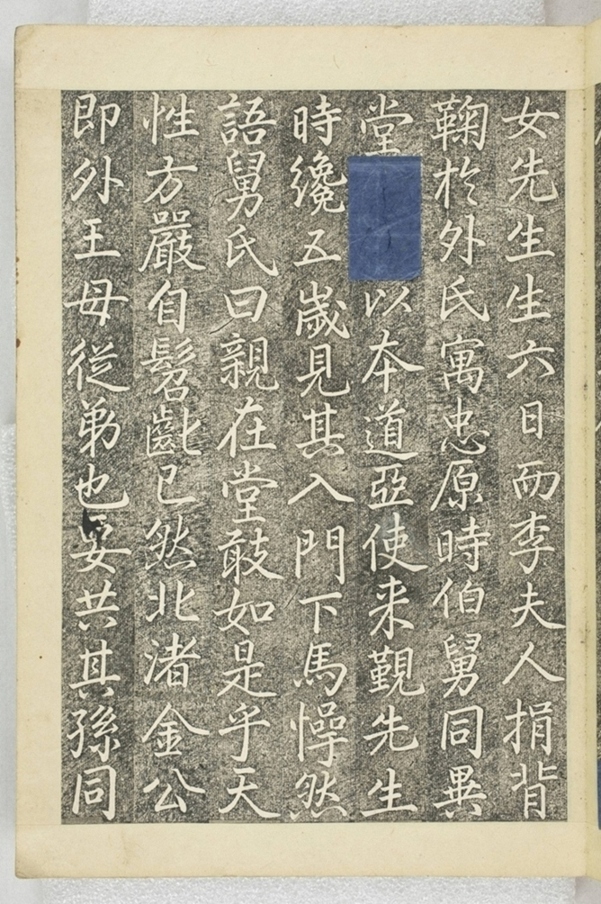 女先生生六日而李夫人捐背
鞠於外氏寓忠原時伯舅同異
堂以本道亞使来覲先生
時纔五歲見其入門下馬悍然
語舅氏曰親在堂敢如是乎天
性方嚴自髫齔已然北渚金公
即外王母從弟也妥共其孫同